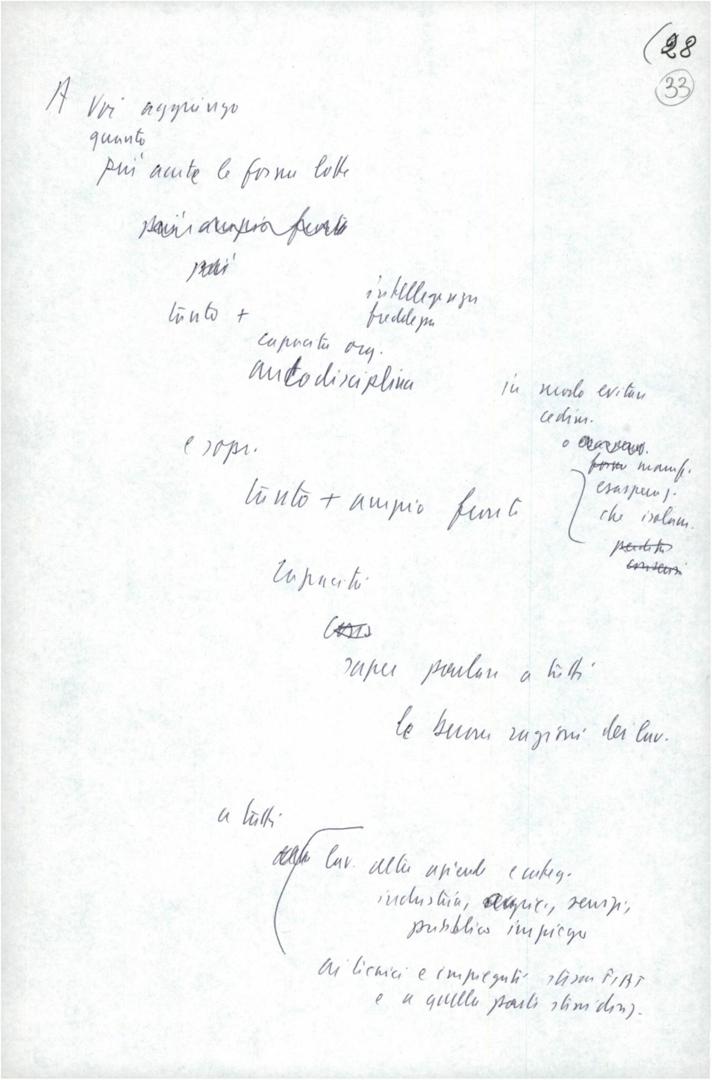 (28
33
A voi aggiungo
quanto
più acute le forme lotte
più ampio fronte
più
tanto +
intelligenza
freddezza
capacità org.
autodisciplina
in modo evitare
cedim.
o
forme manif.
esasperaz.
che isolan.
perdita
consensi
e sopr.
tanto + ampio fronte
Capacità
saper parlare a tutti
le buone ragioni dei lav.
a tutti
lav. altre aziende e categ.
industria, servizi,
pubblico impiego
ai tecnici e impiegati stessa FIAT
e a quella parte stessi